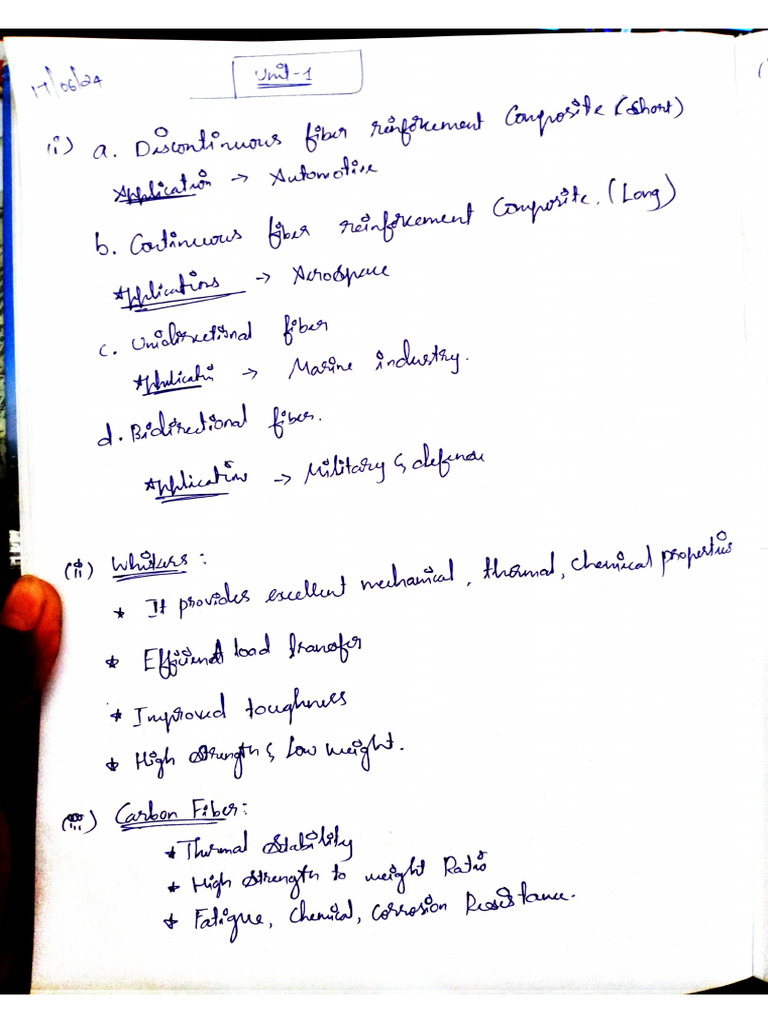 17/06/24
Unit-1
(i) a. Discontinuous fiber reinforcement Composite (short)
*Application → Automotive
b. Continuous fiber reinforcement Composite. (Long)
*Applications → Aerospace
c. Unidirectional fiber
*Applicatin → Marine industry.
d. Bidirectional fiber.
*Application → Military & defense
(ii) Whiskers :
* It provides excellent mechanical, thermal, chemical properties
* Efficient load transfer
* Improved toughness
* High strength & Low weight.
(iii) Carbon Fiber:
* Thermal Stability
* High Strength to weight Ratio
* Fatigue, Chemical, Corrosion Resistance.